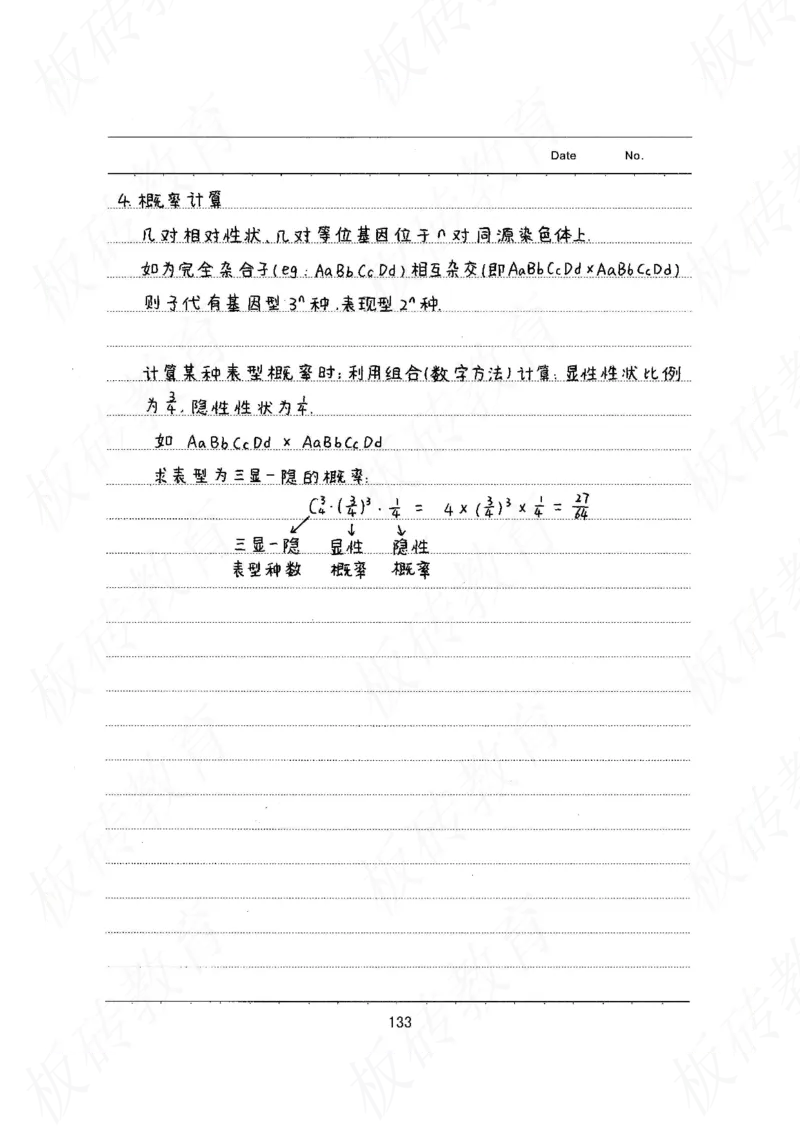 Date No.
4. 概率计算
几对相对性状、几对等位基因位于n对同源染色体上.
如为完全杂合子(eg: AaBbCcDd)相互杂交(即AaBbCcDd×AaBbCcDd)
则子代有基因型3ⁿ种,表现型2ⁿ种.
计算某种表型概率时:利用组合(数字方法)计算:显性性状比例
为3/4,隐性性状为1/4.
如 AaBbCcDd × AaBbCcDd
求表型为三显一隐的概率:
C₄³·(3/4)³·1/4 = 4×(3/4)³×1/4 = 27/64
三显一隐 显性 隐性
表型种数 概率 概率
133
板砖教育